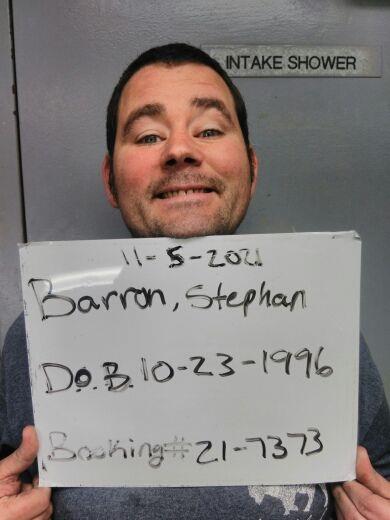 INTAKE SHOWER
11-5-2021
Barron, Stephan
D.O.B. 10-23-1996
Booking# 21-7373